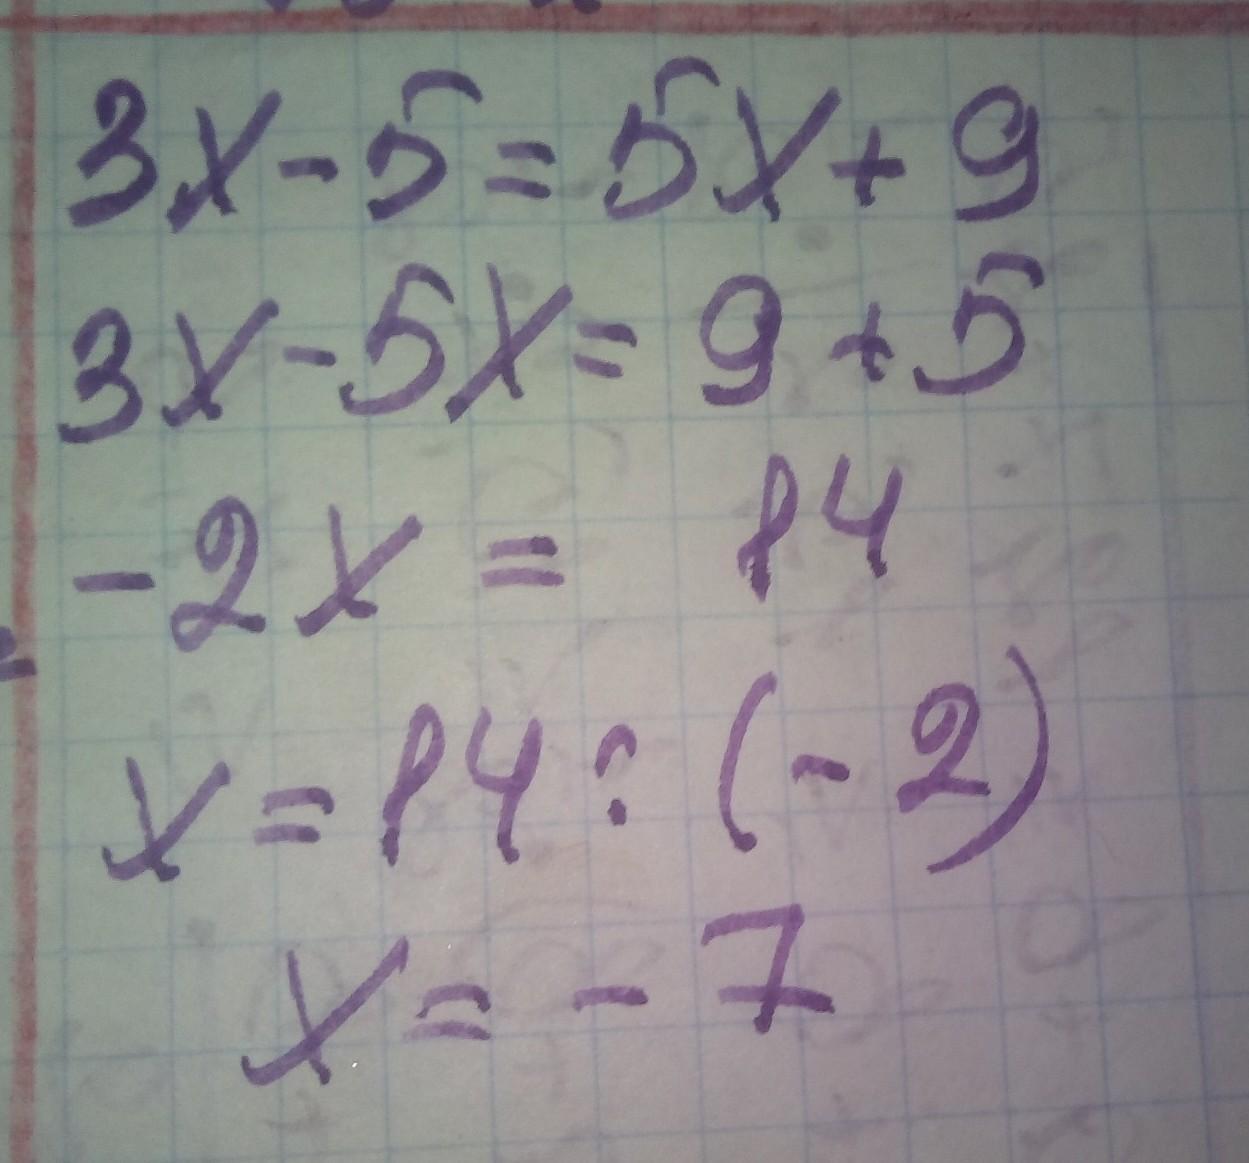 3x-5=5x+9
3x-5x=9+5
-2x= 14
x=14:(-2)
x=-7